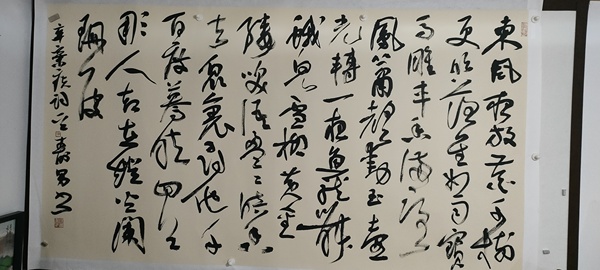 東風夜放花千樹
更吹落星如雨寶
馬雕車香滿路
鳳簫聲動玉壺
光轉一夜魚龍舞
蛾兒雪柳黃金
縷笑語盈盈暗香
去眾裏尋他千
百度驀然回首
那人却在燈火闌
珊處
辛棄疾詞